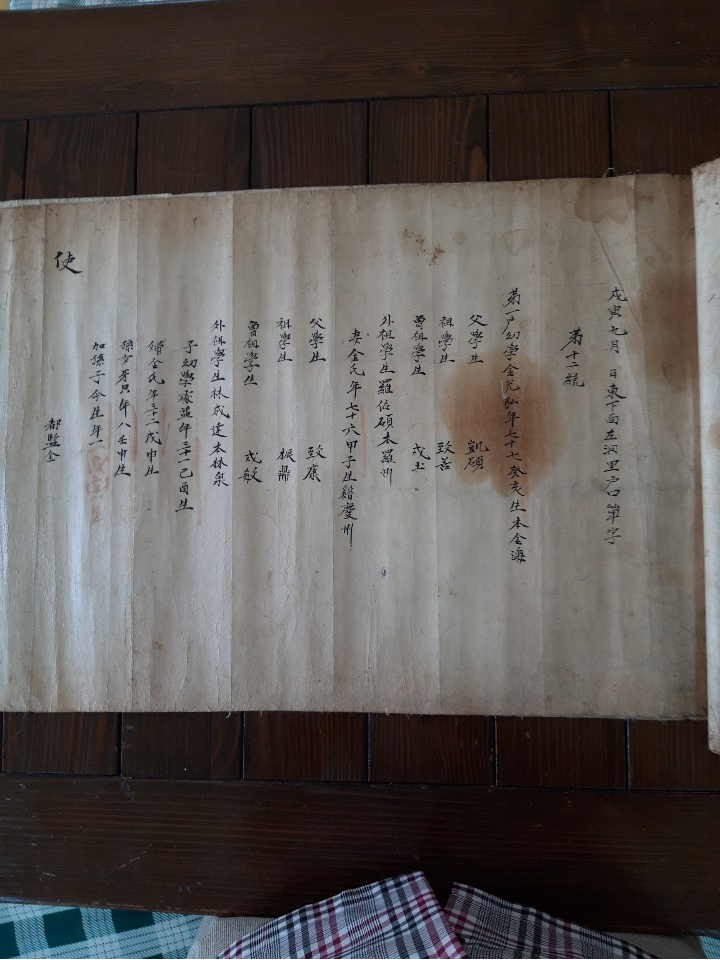 戊寅七月 日東下面左洞里戶口單字
第十二統
第一戶幼學金 弘年七十七癸亥生本金海
父學生 凱碩
祖學生 致善
曾祖學生 戎玉
外祖學生羅佑碩本羅州
妻金氏年七十六甲子生籍慶州
父學生 致康
祖學生 振鼎
曾祖學生 戎敏
外祖學生林成達本林泉
子幼學 年三十一己酉生
婦金氏年三十二戊申生
孫女 年八壬申生
加孫子今生年一
都監金
使